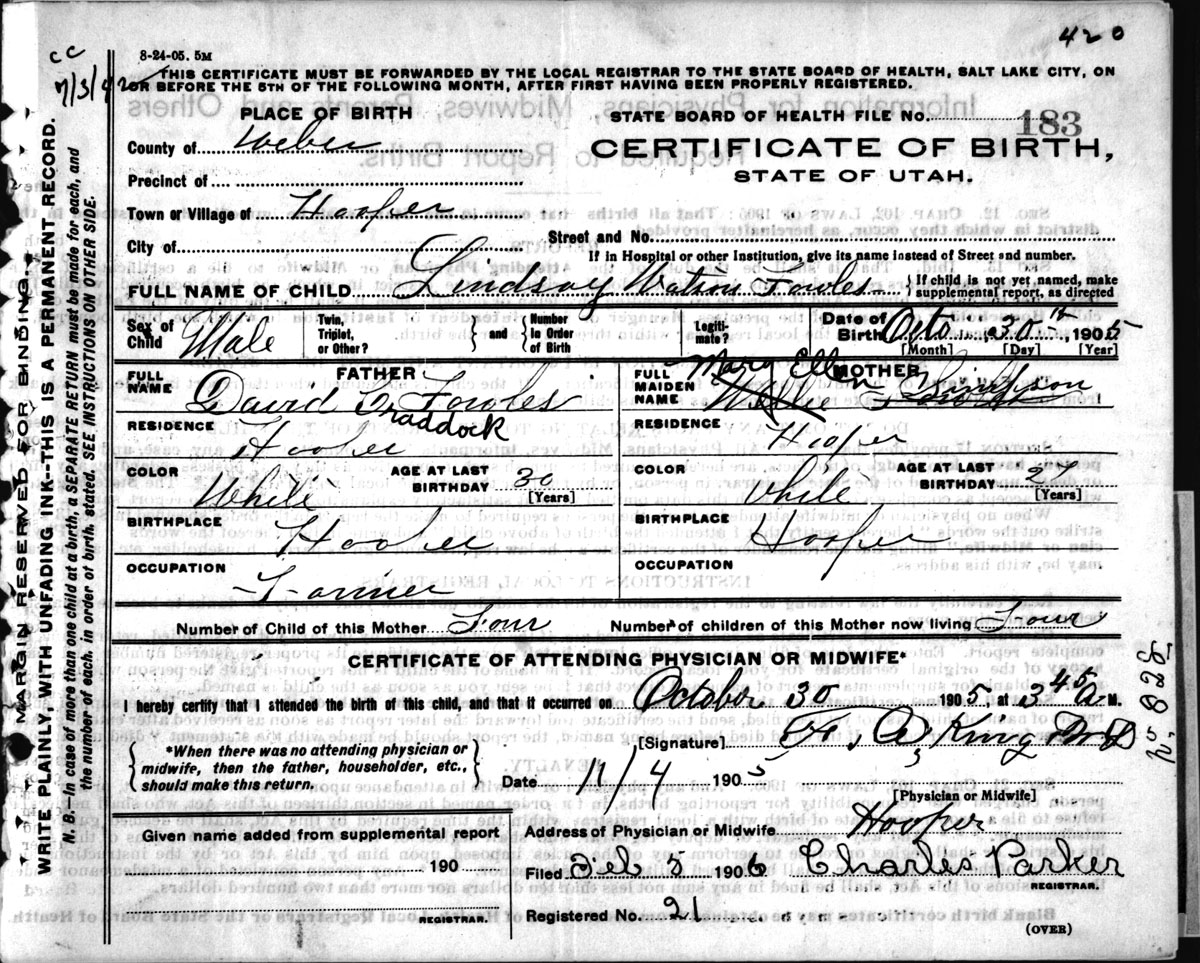 420
8-24-05. 5M
cc
THIS CERTIFICATE MUST BE FORWARDED BY THE LOCAL REGISTRAR TO THE STATE BOARD OF HEALTH, SALT LAKE CITY, ON
OR BEFORE THE 5TH OF THE FOLLOWING MONTH, AFTER FIRST HAVING BEEN PROPERLY REGISTERED.
PLACE OF BIRTH
STATE BOARD OF HEALTH FILE No. 183
County of Weber
CERTIFICATE OF BIRTH,
STATE OF UTAH.
Precinct of
Town or Village of Hooper
City of
Street and No.
If in Hospital or other Institution, give its name instead of Street and number.
FULL NAME OF CHILD Lindsay Watson Fowles
If child is not yet named, make supplemental report, as directed
Sex of Child Male
Twin, Triplet, or Other?
and
Number In Order of Birth
Legitimate?
Date of Birth Octo 30th, 1905
[Month] [Day] [Year]
FATHER
FULL NAME David Braddock Fowles
RESIDENCE Hooper
COLOR White
AGE AT LAST BIRTHDAY 30 [Years]
BIRTHPLACE Hooper
OCCUPATION Farmer
MOTHER
FULL MAIDEN NAME Mary Ellen
RESIDENCE Hooper
COLOR White
AGE AT LAST BIRTHDAY 27 [Years]
BIRTHPLACE Hooper
OCCUPATION
Number of Child of this Mother Four
Number of children of this Mother now living Four
CERTIFICATE OF ATTENDING PHYSICIAN OR MIDWIFE*
I hereby certify that I attended the birth of this child, and that it occurred on October 30 1905, at 3 45 a M.
*When there was no attending physician or midwife, then the father, householder, etc., should make this return.
[Signature] A, King MD
Date 11/4 1905
[Physician or Midwife]
Given name added from supplemental report
190
REGISTRAR.
Address of Physician or Midwife Hooper
Filed Feb 5 1906 Charles Parker
REGISTRAR.
Registered No. 21
(OVER)
MARGIN RESERVED FOR BINDING.
WRITE PLAINLY, WITH UNFADING INK--THIS IS A PERMANENT RECORD.
N. B.--In case of more than one child at a birth, a SEPARATE RETURN must be made for each, and
the number of each, in order of birth, stated. SEE INSTRUCTIONS ON OTHER SIDE.